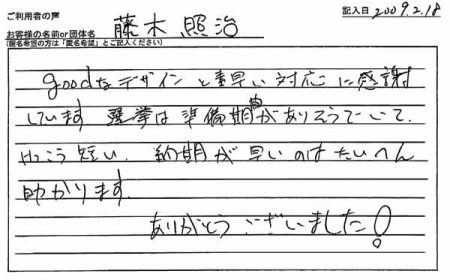 ご利用者の声
記入日 2009.2.18
お客様の名前or団体名 藤木照治
(匿名希望の方は「匿名希望」とご記入ください)
goodなデザインと素早い対応に感謝
しています 選挙は準備期間がありそうでいて、
けっこう短い、納期が早いのはたいへん
助かります。
ありがとうございました!